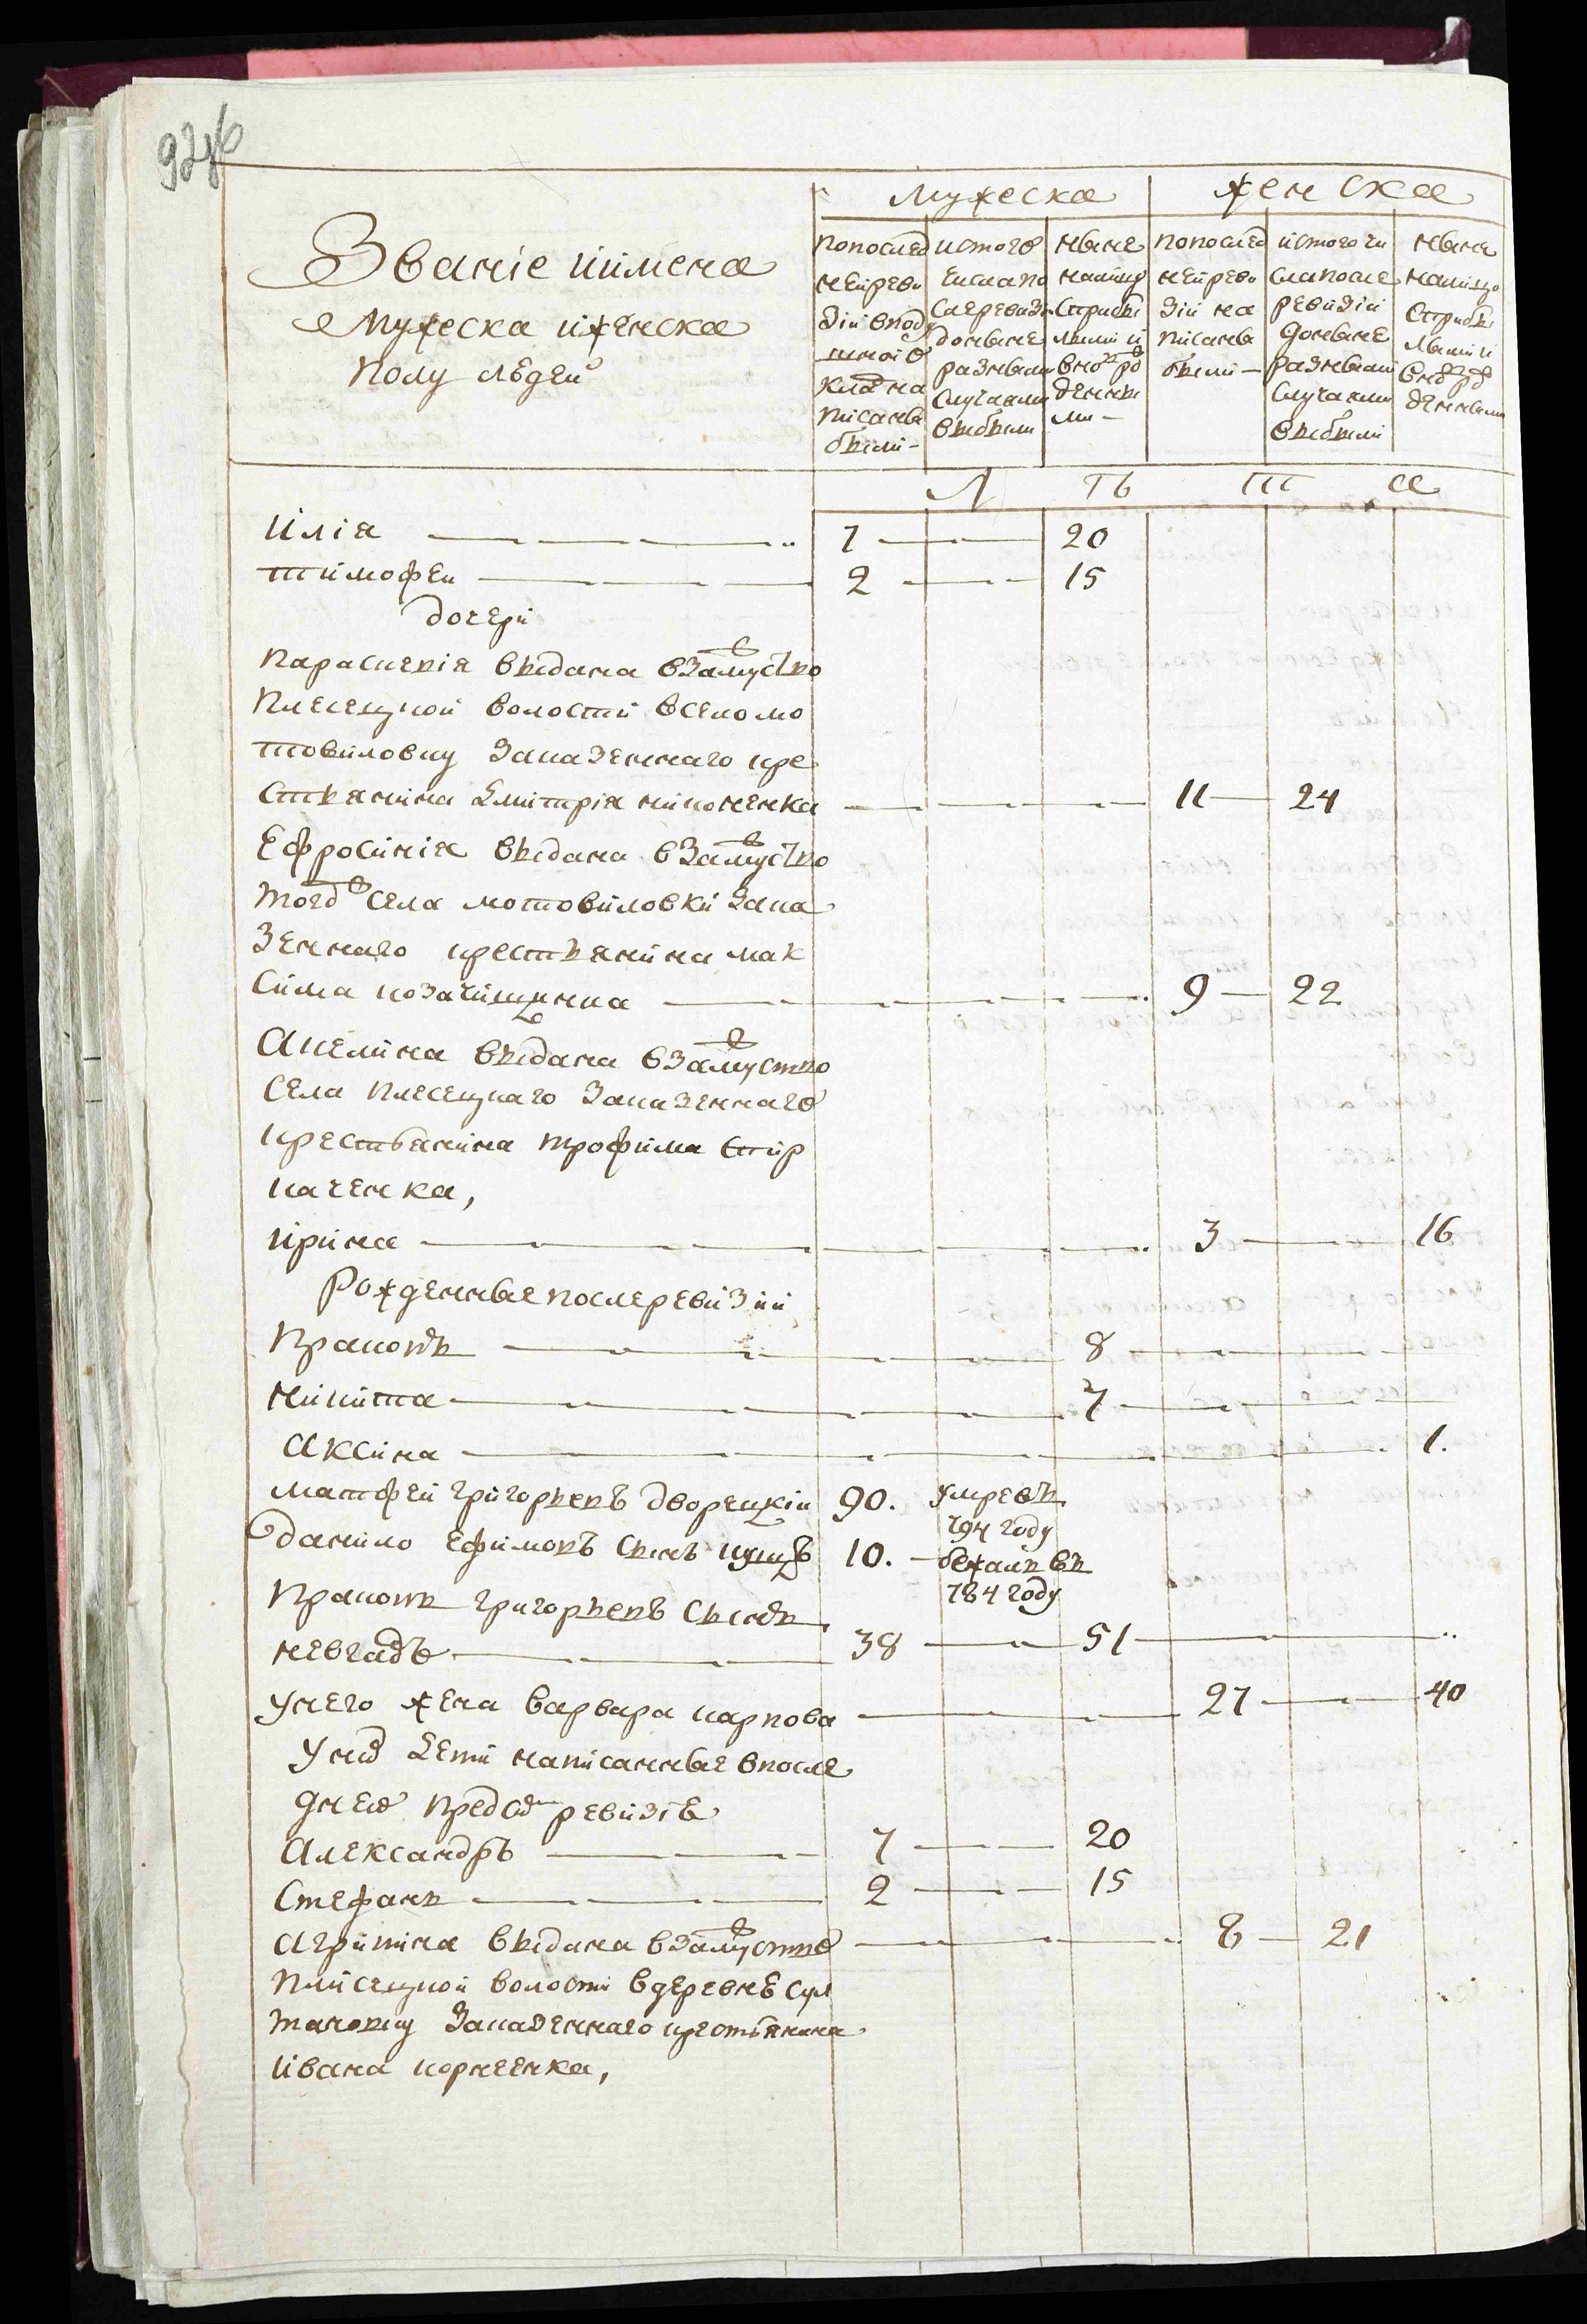 92об
Званіе иимена
Мужеска иженска
полу людей
Мужеска
женска
попослед
ней реви
зіи вподу
шной о
клад на
писаны
были-
истого
числа по
слеревизіи
доныне
разными
случаями
выбыли
ныне
налицо
сприбы
лыми и
вновь ро
жденны
ми-
попослед
ней реви
зіи на
писаны
были-
истого чи
сла после
ревизіи
доныне
разными
случаями
выбыли
ныне
налицо
сприбы
лыми и
вновь ро
жденными
Л Т А
Илія 7 20
Тимофеи 2 15
дочери
Параскевія выдана взамуство
Плесецкой волости вселомо
товиловку заказеннаго кре
стьянина Дмитрія никоненка 11 24
Ефросинія выдана взамуство
того села мотовиловки зака
зеннаго крестьянина мак
сима козачишина 9 22
Акелина выдана взамуство
села плесецкаго заказеннаго
крестьянина трофима Стир
каченка,
ирина 3 16
Рожденные послеревизіи
Прокопъ 8
никита 7
Аксина 1.
матфей григорьевъ дворецкій 90. умревъ 794 году
данило ефимовъ сынъ 10. бежалъ въ 784 году
Прокопъ григорьевъ сынъ
невгадъ 38 51
унего жена варвара карпова 27 40
Уних дети написанные впосле
дней пред сим ревизіе
Александръ 7 20
Стефанъ 2 15
агрипина выдана взамуство 8 21
плисецкой волости вдеревнѣ сул
тановку заказеннаго крестьянина
ивана корнеенка,